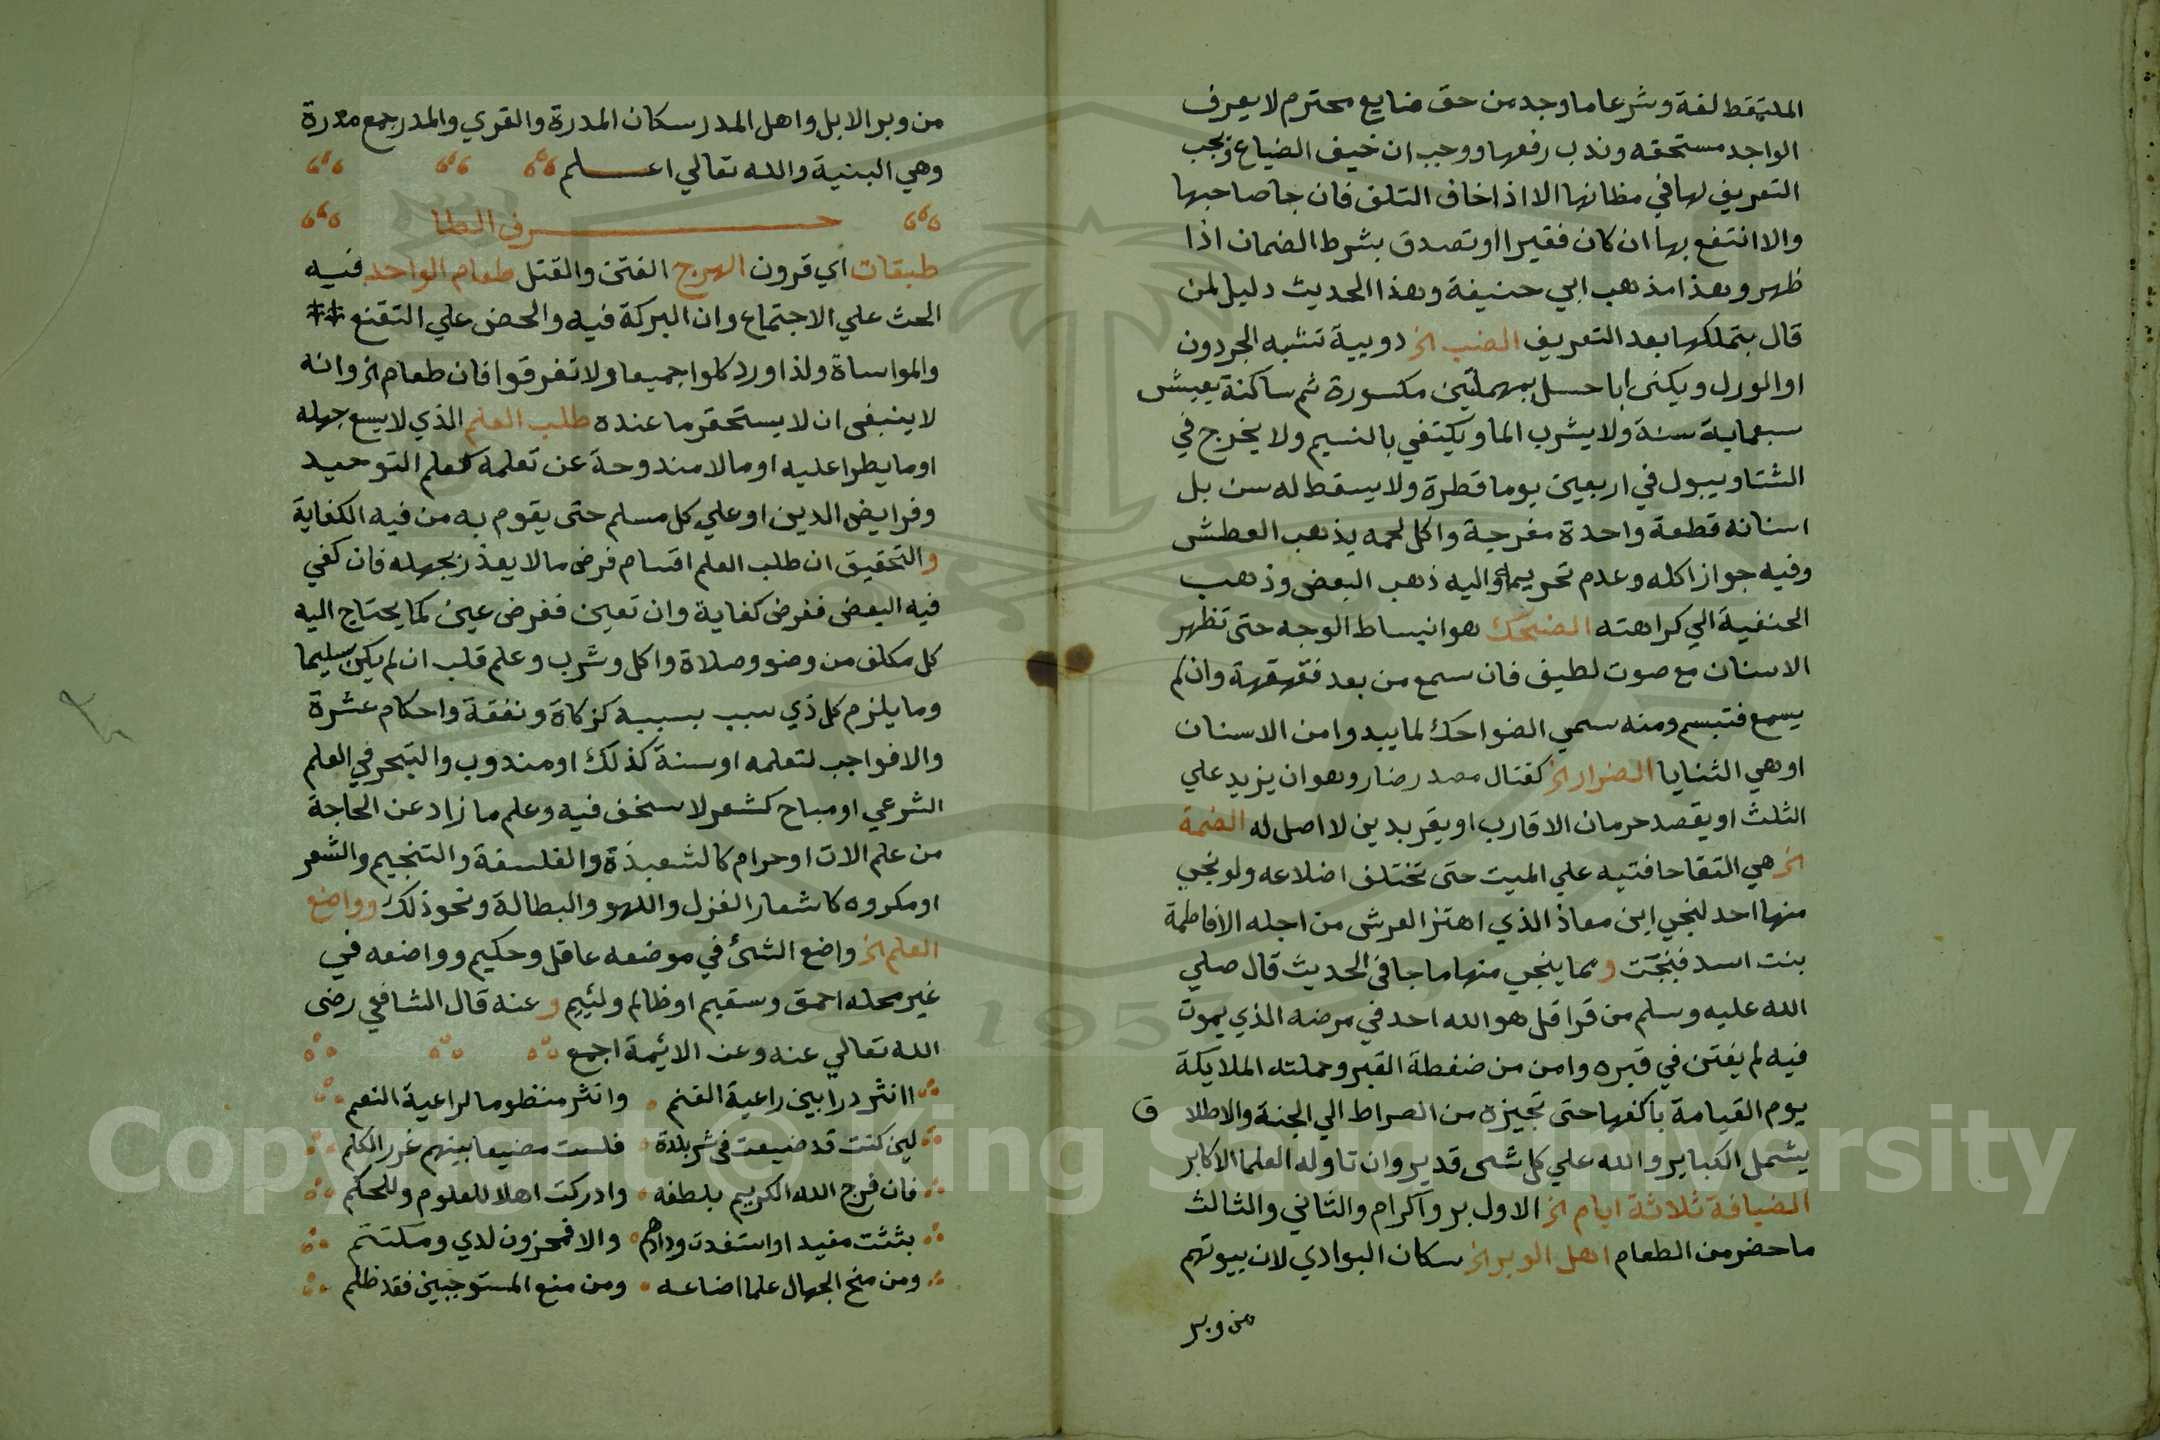 الملتقط لغة وشرعا ما وجد من حق ضايع محترم لا يعرف
الواجد مستحقه وندب رفعها ووجب ان خيف الضياع ويجب
التعريف لها في مظانها الا اذا خاف التلف فان جا صاحبها
والا انتفع بها ان كان فقيرا او تصدق بشرط الضمان اذا
ظهر وهذا مذهب ابي حنيفة وهذا الحديث دليل لمن
قال بتملكها بعد التعريف الضب الخ دويبة تشبه الجردون
او الورل ويكنى ابا حسل بمهملتين مكسورة ثم ساكنة يعيش
سبعماية سنة ولا يشرب الما ويكتفي بالنسيم ولا يخرج في
الشتا ويبول في اربعين يوما قطرة ولا يسقط له سن بل
اسنانه قطعة واحدة مفرجة واكل لحمه يذهب العطش
وفيه جواز اكله وعدم تحريمه واليه ذهب البعض وذهب
الحنفية الي كراهته الضحك هو انبساط الوجه حتى تظهر
الاسنان مع صوت لطيف فان سمع من بعد فقهقهة وان لم
يسمع فتبسم ومنه سمي الضواحك لما يبدوا من الاسنان
او هي الثنايا الضرار الخ كقتال مصدر ضار وهو ان يزيد علي
الثلث او يقصد حرمان الاقارب او يقر بدين لا اصل له الضمة
الخ هي التقا حافتيه علي الميت حتى تختلف اضلاعه ولو نجي
منها احد لنجي ابن معاذ الذي اهتز العرش من اجله الا فاطمة
بنت اسد فنجت ومما ينجي منها ما جا في الحديث قال صلي
الله عليه وسلم من قرا قل هو الله احد في مرضه الذي يموت
فيه لم يفتن في قبره وامن من ضغطة القبر وحملته الملايكة
يوم القيامة باكفها حتى تجيزه من الصراط الي الجنة والاطلا ق
يشمل الكباير والله علي كل شى قدير وان تاوله العلما الاكابر
الضيافة ثلاثة ايام الخ الاول بر واكرام والثاني والثالث
ما حضر من الطعام اهل الوبر الخ سكان البوادي لان بيوتهم
من وبر
من وبر الابل واهل المدر سكان المدرة والقري والمدر جمع مدرة
وهي البنية والله تعالي اعلم
حرف الطا
طبقات اي قرون الهرج الفتن والقتل طعام الواحد فيه
الحث علي الاجتماع وان البركة فيه والحض علي التقنع
والمواساة ولذا ورد كلوا جميعا ولا تفرقوا فان طعام الخ وانه
لا ينبغى ان لا يستحقر ما عنده طلب العلم الذي لا يسع جهله
او ما يطرا عليه او ما لا مندوحة عن تعلمه كعلم التوحيد
وفرايض الدين او علي كل مسلم حتى يقوم به من فيه الكفاية
والتحقيق ان طلب العلم اقسام فرض ما لا يعذر بجهله فان كفي
فيه البعض ففرض كفاية وان تعين ففرض عين كما يحتاج اليه
كل مكلف من وضو وصلاة واكل وشرب وعلم قلب ان لم يكن سليما
وما يلزم كل ذي سبب بسببه كزكاة ونفقة واحكام عشرة
والا فواجب لتعلمه او سنة كذلك او مندوب والتبحر في العلم
الشرعي او مباح كشعر لا سخف فيه وعلم ما زاد عن الحاجة
من علم الات او حرام كالشعبذة والفلسفة والتنجيم والشعر
او مكروه كاشعار الغزل واللهو والبطالة ونحو ذلك وواضع
العلم الخ واضع الشئ في موضعه عاقل وحكيم وواضعه في
غير محله احمق وسقيم او ظالم ولئيم وعنه قال الشافعي رضى
الله تعالي عنه وعن الايمة اجمع
اانثر درا بين راعية الغنم وانثر منظوما لراعية النعم
لين كنت قد ضيعت في شر بلدة فلست مضيعا بينهم غرر الكلم
فان فرج الله الكريم بلطفه وادركت اهلا للعلوم وللحكم
بثثت مفيدا واستفدت ودادهم والا فمخزون لدي ومكتتم
ومن منح الجهال علما اضاعه ومن منع المستوجبين فقد ظلم
Copyright © King Saud University
195